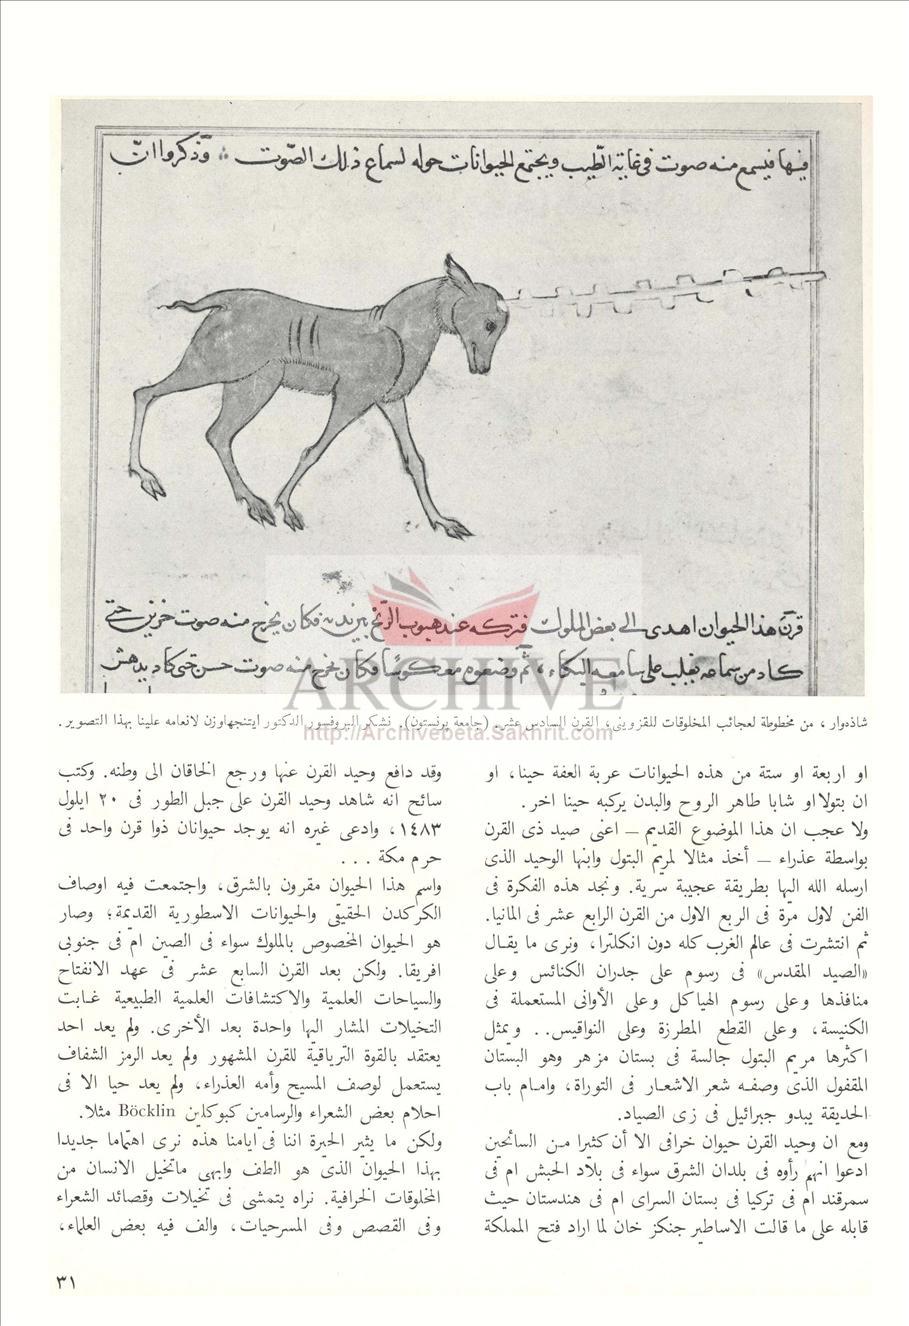 فيها فيسمع منه صوت فى غاية الطّيب ويجتمع الحيوانات حوله لسماع ذلك الصّوت ؞ وذكروا انّ
قرن هذا الحيوان اهدى الى بعض الملوك فتركه عند هبوب الرّيح بين يديه فكان يخرج منه صوت حزين حتى
كاد من سماعه يغلب على سامعه البكاء، ثم وضعوه معكوسًا فكان يخرج منه صوت حسن حتى كاد يدهش
ARCHIVE
http://Archivebeta.Sakhrit.com
شاذهوار ، من مخطوطة لعجائب المخلوقات للقزوينى، القرن السادس عشر. (جامعة پرنستون). نشكر البروفسور الدكتور ايتنجهاوزن لانعامه علينا بهذا التصوير.
او اربعة او ستة من هذه الحيوانات عربة العفة حينا، او
ان بتولا او شابا طاهر الروح والبدن يركبه حينا اخر.
ولا عجب ان هذا الموضوع القديم – اعنى صيد ذى القرن
بواسطة عذراء – أخذ مثالا لمريم البتول وابنها الوحيد الذى
ارسله الله اليها بطريقة عجيبة سّرية. ونجد هذه الفكرة فى
الفن لاول مرّة فى الربع الاول من القرن الرابع عشر فى المانيا.
ثم انتشرت فى عالم الغرب كله دون انكلترا، ونرى ما يقال
«الصيد المقدس» فى رسوم على جدران الكنائس وعلى
منافذها وعلى رسوم الهياكل وعلى الأوانى المستعملة فى
الكنيسة، وعلى القطع المطرزة وعلى النواقيس.. ويمثل
اكثرها مريم البتول جالسة فى بستان مزهر وهو البستان
المقفول الذى وصفه شعر الاشعار فى التوراة، وامام باب
الحديقة يبدو جبرائيل فى زى الصياد.
ومع ان وحيد القرن حيوان خرافى الا أن كثيرا من السائحين
ادعوا انهم رأوه فى بلدان الشرق سواء فى بلاد الحبش ام فى
سمرقند ام فى تركيا فى بستان السراى ام فى هندستان حيث
قابله على ما قالت الاساطير جنكز خان لما اراد فتح المملكة
وقد دافع وحيد القرن عنها ورجع الخاقان الى وطنه. وكتب
سائح انه شاهد وحيد القرن على جبل الطور فى ٢٠ ايلول
١٤٨٣، وادعى غيره انه يوجد حيوانان ذوا قرن واحد فى
حرم مكة ...
واسم هذا الحيوان مقرون بالشرق، واجتمعت فيه اوصاف
الكركدن الحقيقى والحيوانات الاسطورية القديمة؛ وصار
هو الحيوان المخصوص بالملوك سواء فى الصين ام فى جنوبى
افريقا. ولكن بعد القرن السابع عشر فى عهد الانفتاح
والسياحات العلمية والاكتشافات العلمية الطبيعية غابت
التخيلات المشار اليها واحدة بعد الأخرى. ولم يعد احد
يعتقد بالقوة الترياقية للقرن المشهور ولم يعد الرمز الشفاف
يستعمل لوصف المسيح وأمه العذراء، ولم يعد حيا الا فى
احلام بعض الشعراء والرسامين كبوكلين Böcklin مثلا.
ولكن ما يثير الحيرة اننا فى ايامنا هذه نرى اهتماما جديدا
بهذا الحيوان الذى هو الطف وابهى ماتخيل الانسان من
المخلوقات الخرافية. نراه يتمشى فى تخيلات وقصائد الشعراء
وفى القصص وفى المسرحيات، والف فيه بعض العلماء،
٣١